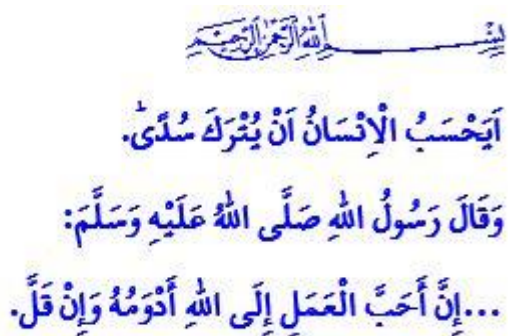 بِسْمِ اللّٰهِ الرَّحْمٰنِ الرَّحِيمِ
اَيَحْسَبُ الْاِنْسَانُ اَنْ يُتْرَكَ سُدًىۜ.
وَقَالَ رَسُولُ اللّٰهِ صَلَّى اللّٰهُ عَلَيْهِ وَسَلَّمَ:
...إِنَّ أَحَبَّ الْعَمَلِ إِلَى اللّٰهِ أَدْوَمُهُ وَإِنْ قَلَّ.